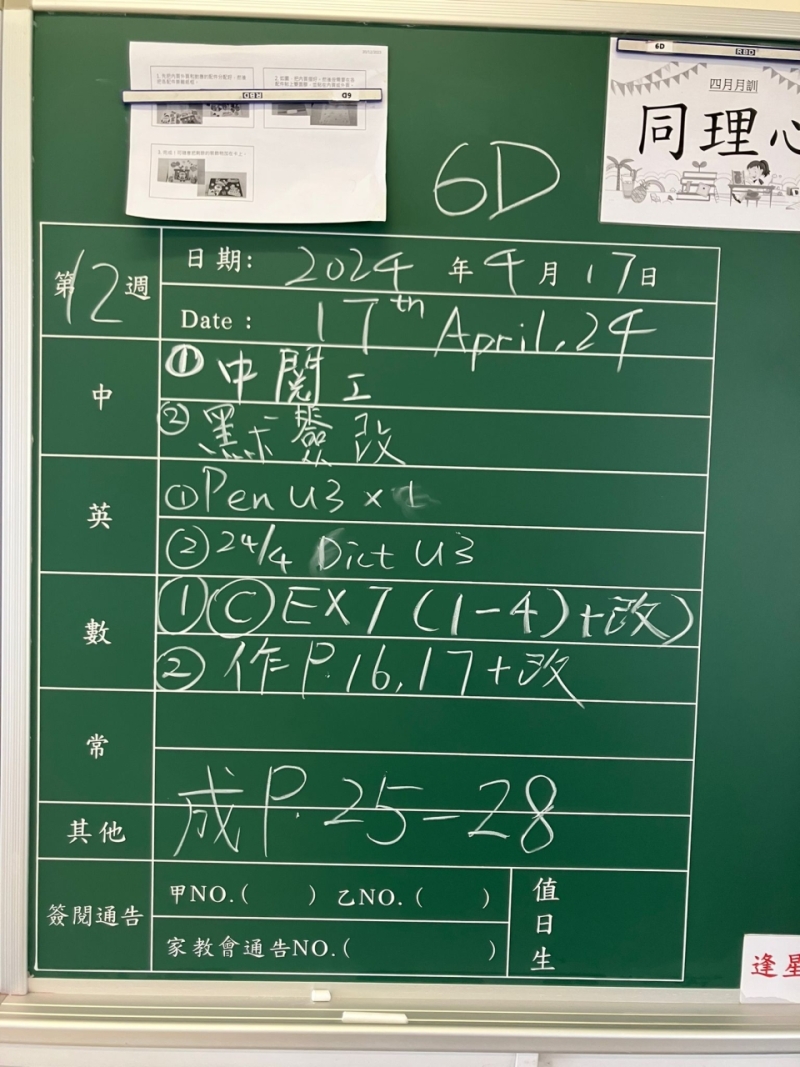 6D
RBD
四月月訓
同理心
RBD
6D
6D
第12週
日期: 2024 年 4 月 17 日
Date : 17th April, 24
中
① 中閱工
② 黑卡 改
英
① Pen U3 x 1
② 24/4 Dict U3
數
① Ⓒ EX 7 (1-4) + 改)
② 作 P.16, 17 + 改
常
成 P. 25-28
其他
簽閱通告
甲NO.( ) 乙NO.( )
家教會通告NO.( )
值日生
逢星